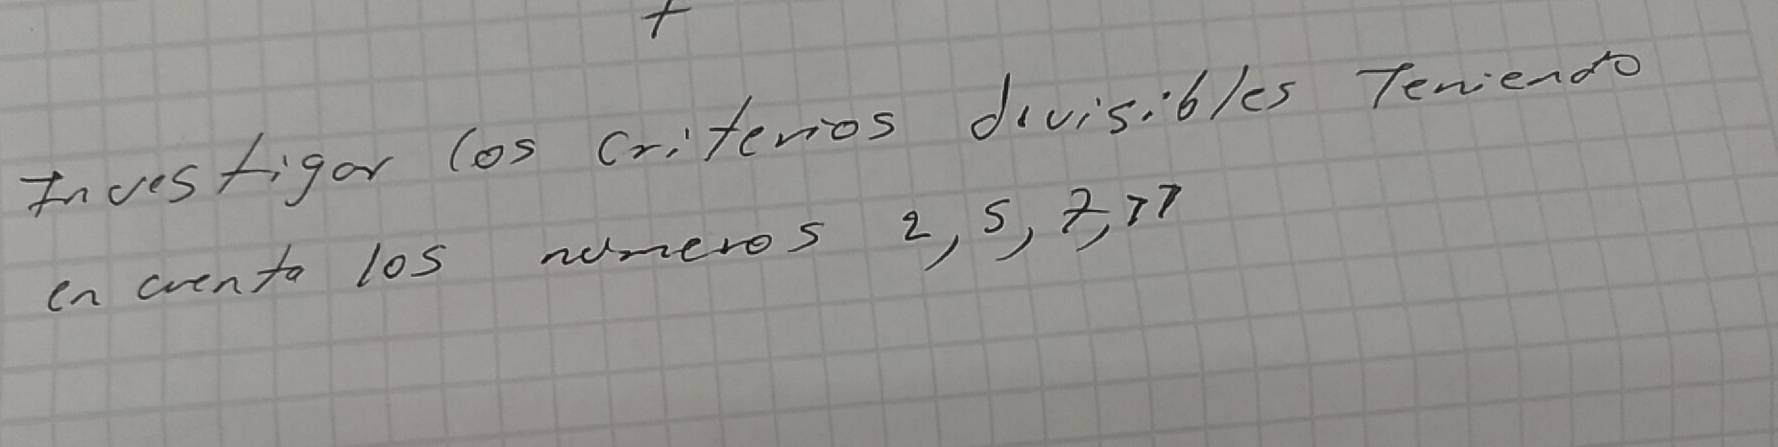 Investigar los criterios divisibles Teniendo
en cuenta los numeros 2, 5, 7, 11